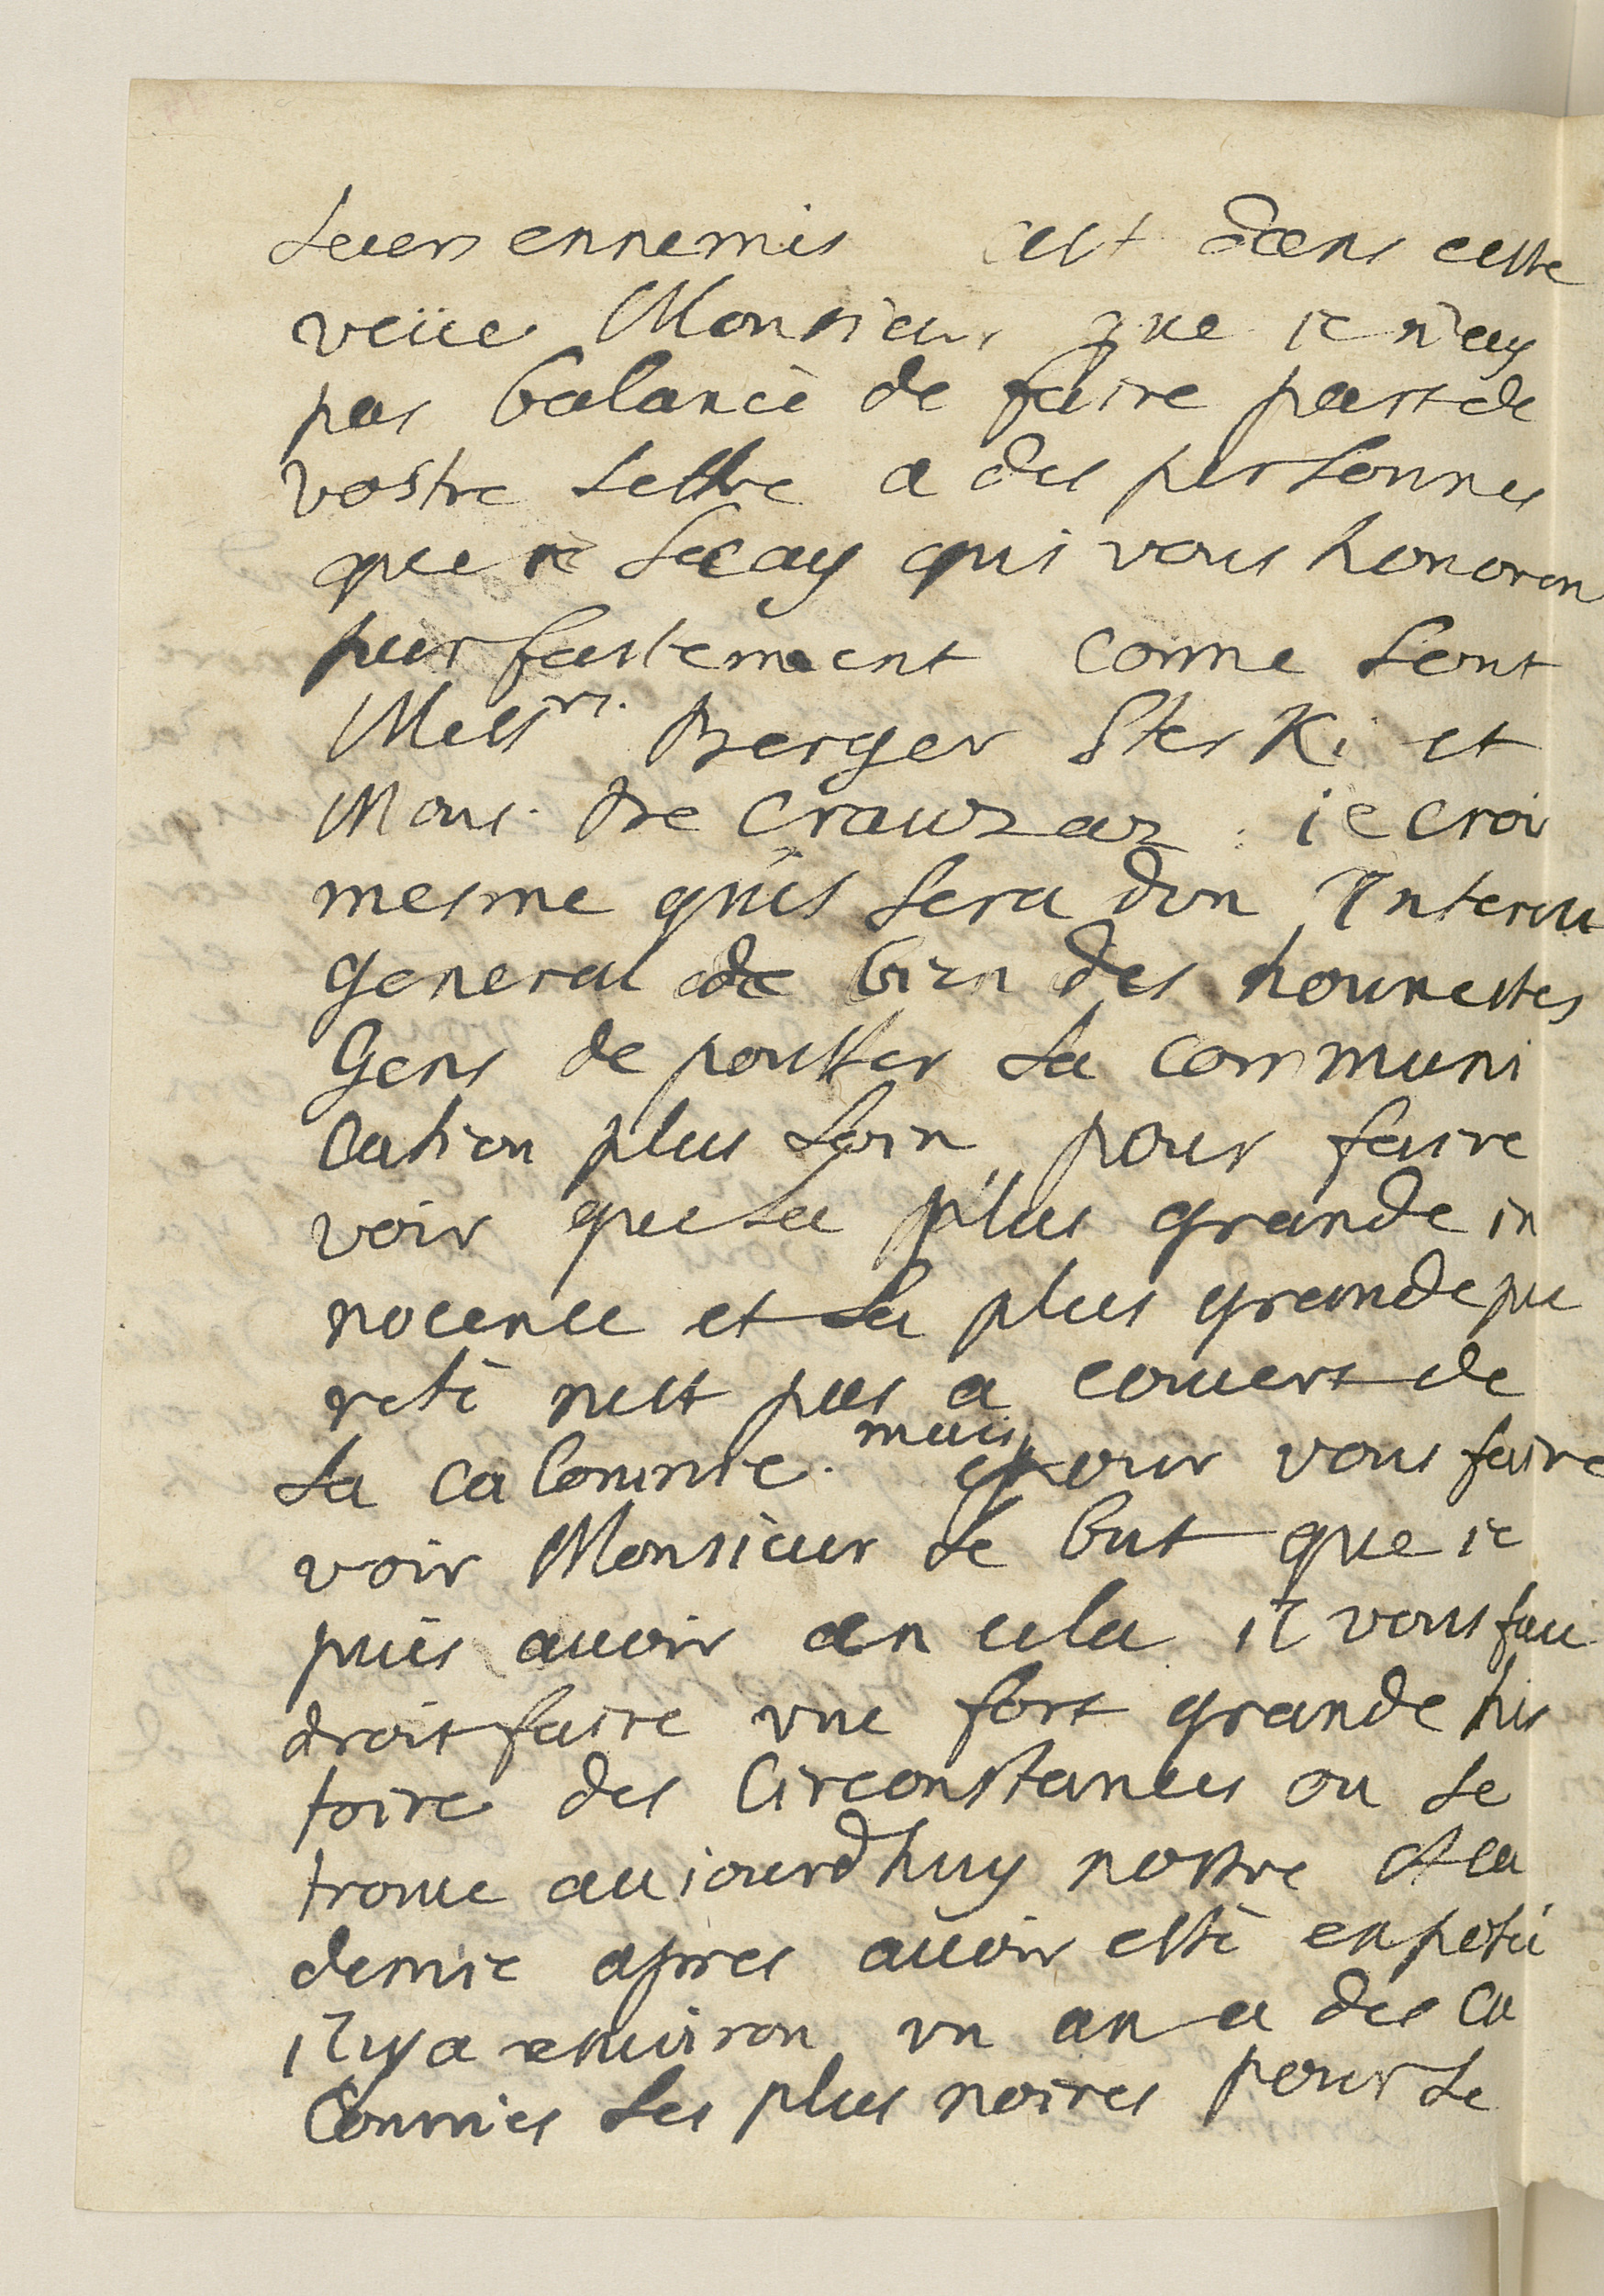 Leurs ennemis cest dans cette
veüe Monsieur que ie n'ay
pas balancè de faire part de
vostre Lettre a des personnes
que ie scay qui vous honoren
parfaitement comme sont
Messrs. Berger Sterki et
Mons. De Crauzaz. ie croi
mesme quis sera dun Interu
general de bien des honnestes
Gens de pousser la communi
cation plus Loin pour faire
voir que la plus grande in
nocence et la plus grande pu
retè nest pas a couuert de
La calomnie. mais pour vous faire
voir Monsieur le but que ie
puis auoir en cela il vous fau
droit faire vne fort grande his
toire des Circonstances ou se
trouue auiourdhuy nostre Aca
demie apres auoir estè exposée
il y a enuiron vn an a des ca
Lomnies les plus noires pour le